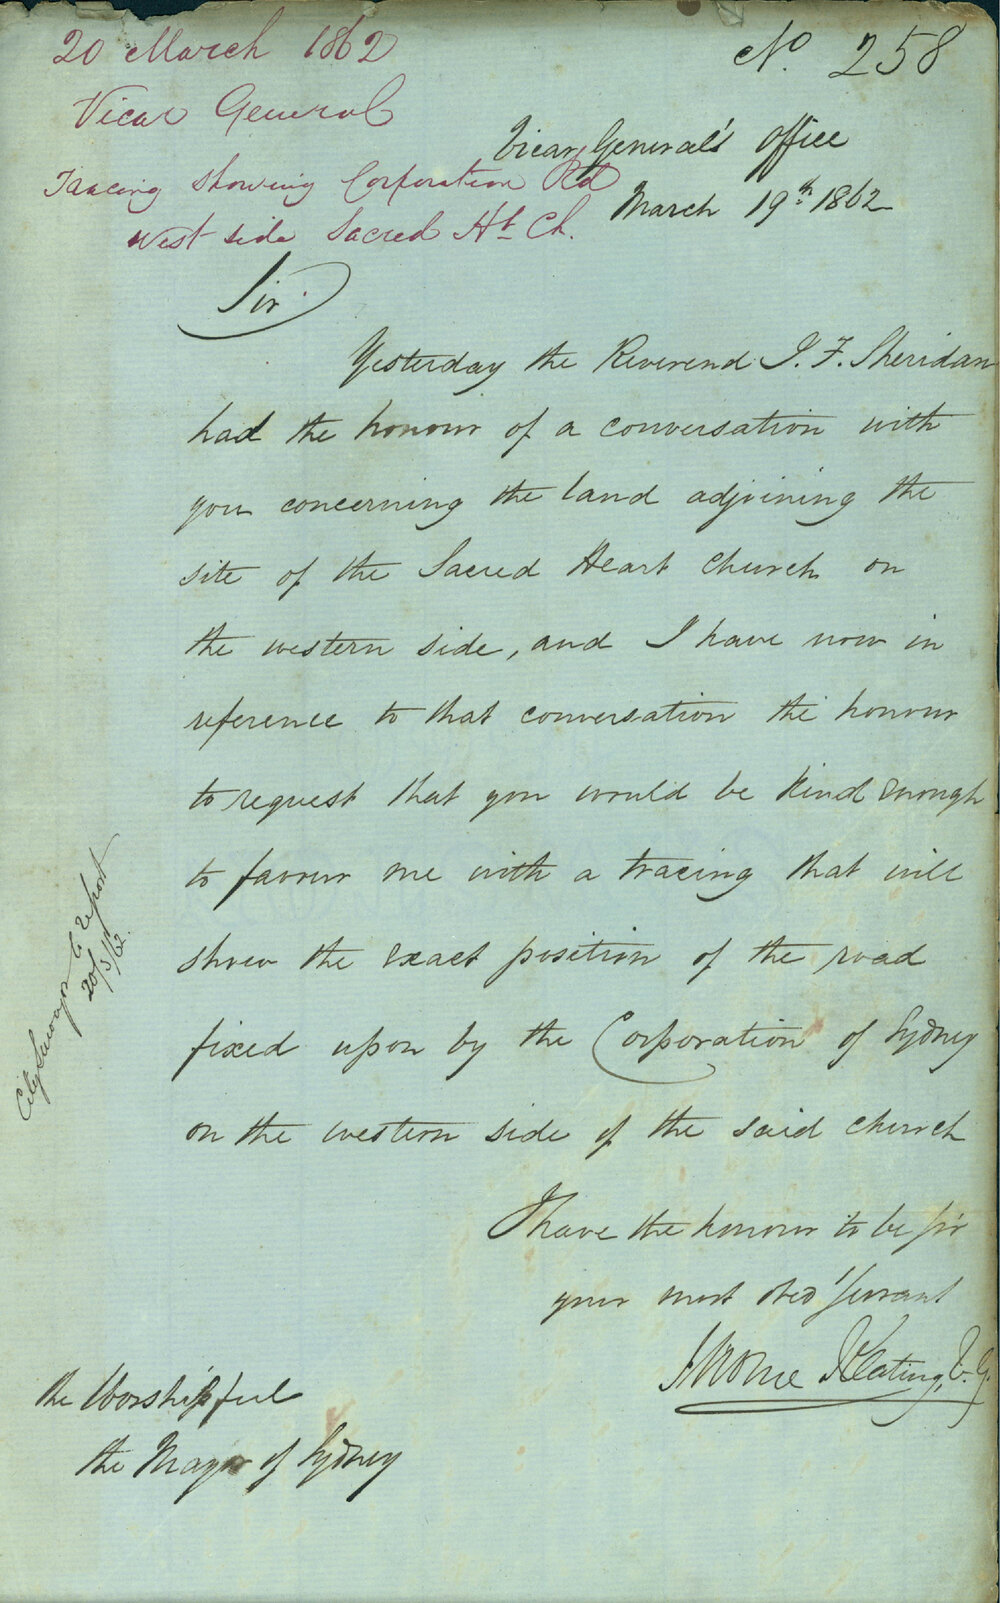 20 March 1862
Vicar General
Tracing showing Corporation Rd
West side Sacred Ht Ch.
No. 258
Vicar General's Office
March 19th 1862
Sir
Yesterday the Reverend J. F. Sheridan
had the honour of a conversation with
you concerning the land adjoining the
site of the Sacred Heart Church on
the western side, and I have now in
reference to that conversation the honour
to request that you would be kind enough
to favour me with a tracing that will
shew the exact position of the road
fixed upon by the Corporation of Sydney
on the western side of the said church
I have the honour to be Sir
your most obed Servant
Jerome Keating, V.G.
The Worshipful
the Mayor of Sydney
City Surveyor to report
20/3/62